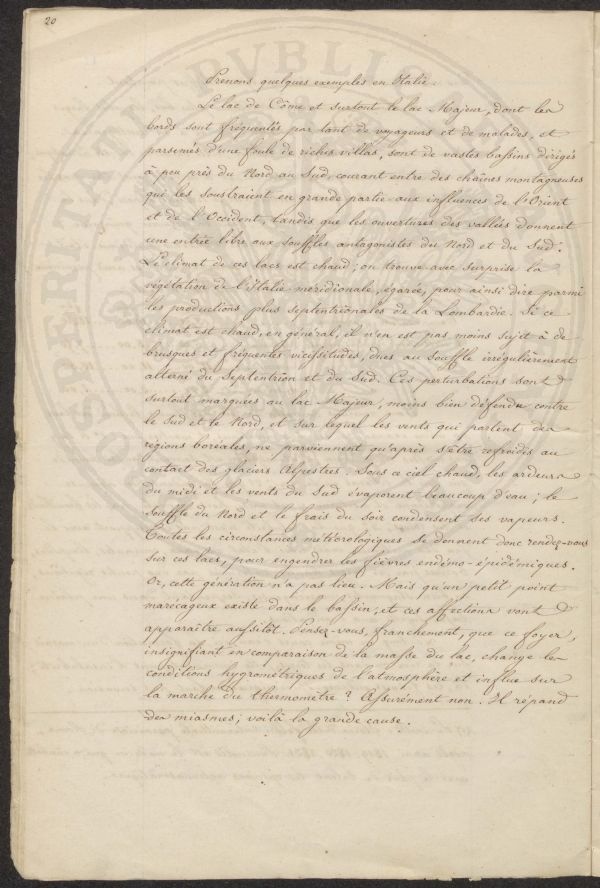 20
Prenons quelques exemples en Italie.
Le lac de Côme et surtout le lac Majeur, dont les
bords sont fréquentés par tant de voyageurs et de malades, et
parsemés d'une foule de riches villas, sont de vastes bassins dirigés
à peu près du Nord au Sud, courant entre des chaînes montagneuses
qui les soustraient en grande partie aux influences de l'Orient
et de l'Occident, tandis que les ouvertures des vallées donnent
une entrée libre aux souffles antagonistes du Nord et du Sud.
Le climat de ces lacs est chaud; on trouve avec surprise la
végétation de l'Italie méridionale, égarée, pour ainsi dire parmi
les productions plus septentrionales de la Lombardie. Si ce
climat est chaud, en général, il n'en est pas moins sujet à de
brusques et fréquentes vicissitudes, dues au souffle irrégulièrement
alterné du Septentrion et du Sud. Ces perturbations sont
surtout marquées au lac Majeur, moins bien défendu contre
le Sud et le Nord, et sur lequel les vents qui partent des
régions boréales, ne parviennent qu'après s'être refroidis au
contact des glaciers Alpestres. Sous ce ciel chaud, les ardeurs
du midi et les vents du Sud évaporent beaucoup d'eau; le
souffle du Nord et le frais du soir condensent ses vapeurs.
Toutes les circonstances météorologiques se donnent donc rendez-vous
sur ces lacs, pour engendrer les fièvres endémo-épidémiques.
Or, cette génération n'a pas lieu. Mais qu'un petit point
marécageux existe dans le bassin, et ces affections vont
apparaître aussitôt. Pensez-vous, franchement, que ce foyer,
insignifiant en comparaison de la masse du lac, change les
conditions hygrométriques de l'atmosphère et influe sur
la marche du thermomètre? Assurément non. Il répand
des miasmes; voilà la grande cause.